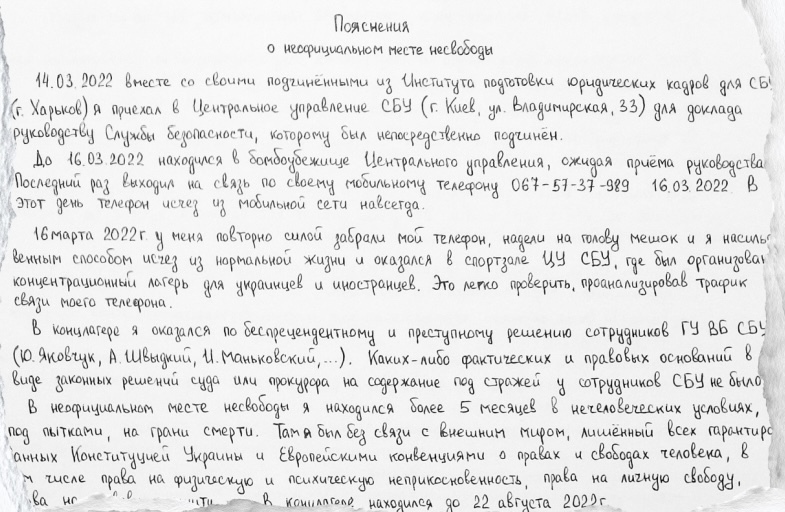 Пояснения
о неофициальном месте несвободы
14.03.2022 вместе со своими подчинёнными из Института подготовки юридических кадров для СБУ
(г. Харьков) я приехал в Центральное управление СБУ (г. Киев, ул. Владимирская, 33) для доклада
руководству Службы безопасности, которому был непосредственно подчинён.
До 16.03.2022 находился в бомбоубежище Центрального управления, ожидая приёма руководства
Последний раз выходил на связь по своему мобильному телефону 067-57-37-989 16.03.2022. В
этот день телефон исчез из мобильной сети навсегда.
16 марта 2022 г. у меня повторно силой забрали мой телефон, надели на голову мешок и я насиль
венным способом исчез из нормальной жизни и оказался в спортзале ЦУ СБУ, где был организован
концентрационный лагерь для украинцев и иностранцев. Это легко проверить, проанализировав трафик
связи моего телефона.
В концлагере я оказался по беспрецендентному и преступному решению сотрудников ГУ ВБ СБУ
(Ю. Яковчук, А. Швыдкий, И. Маньковский,...). Каких-либо фактических и правовых оснований в
виде законных решений суда или прокурора на содержание под стражей у сотрудников СБУ не было
В неофициальном месте несвободы я находился более 5 месяцев в нечеловеческих условиях,
под пытками, на грани смерти. Там я был без связи с внешним миром, лишённый всех гарантиро
анных Конституцией Украины и Европейскими конвенциями о правах и свободах человека, в
м числе права на физическую и психическую неприкосновенность, права на личную свободу,
ва на В концлагере находился до 22 августа 2022 г.